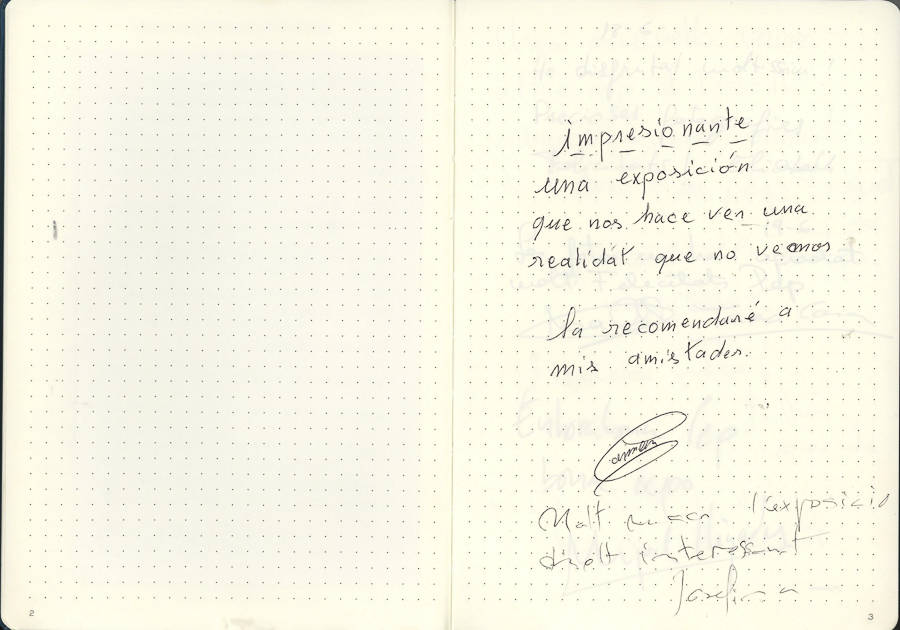 impresionante
una exposición
que nos hace ver una
realidát que no vemos
la recomendaré a
mis amistades.
Molt l'exposicio
molt interessant
Josefina
2
3